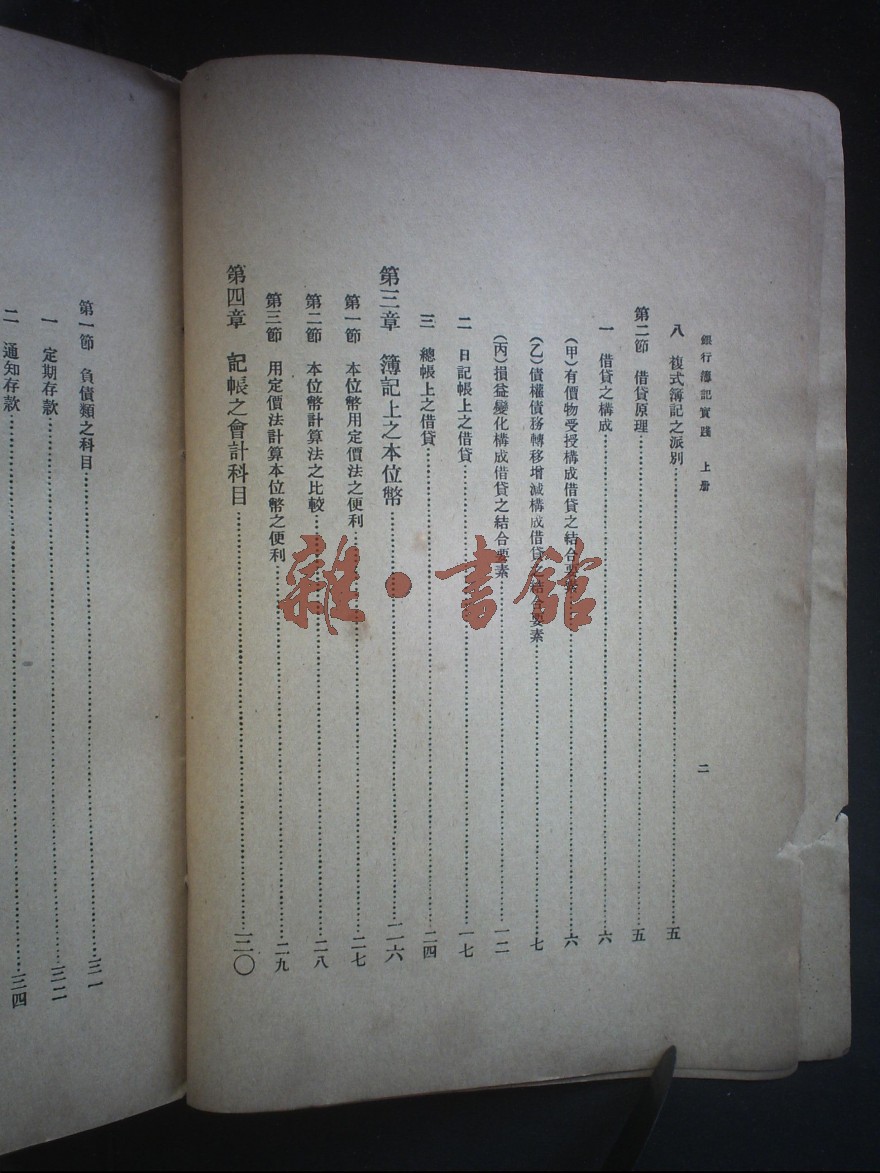 銀行簿記實踐 上册 二
八 複式簿記之派別……五
第二節 借貸原理……五
一 借貸之構成……六
(甲)有價物受授構成借貸之結合要素……六
(乙)債權債務轉移增減構成借貸之結合要素……七
(丙)損益變化構成借貸之結合要素……一二
二 日記帳上之借貸……一七
三 總帳上之借貸……二四
第三章 簿記上之本位幣……二六
第一節 本位幣用定價法之便利……二七
第二節 本位幣計算法之比較……二八
第三節 用定價法計算本位幣之便利……二九
第四章 記帳之會計科目……三〇
第一節 負債類之科目……三一
一 定期存款……三二
二 通知存款……三四
雜·書館